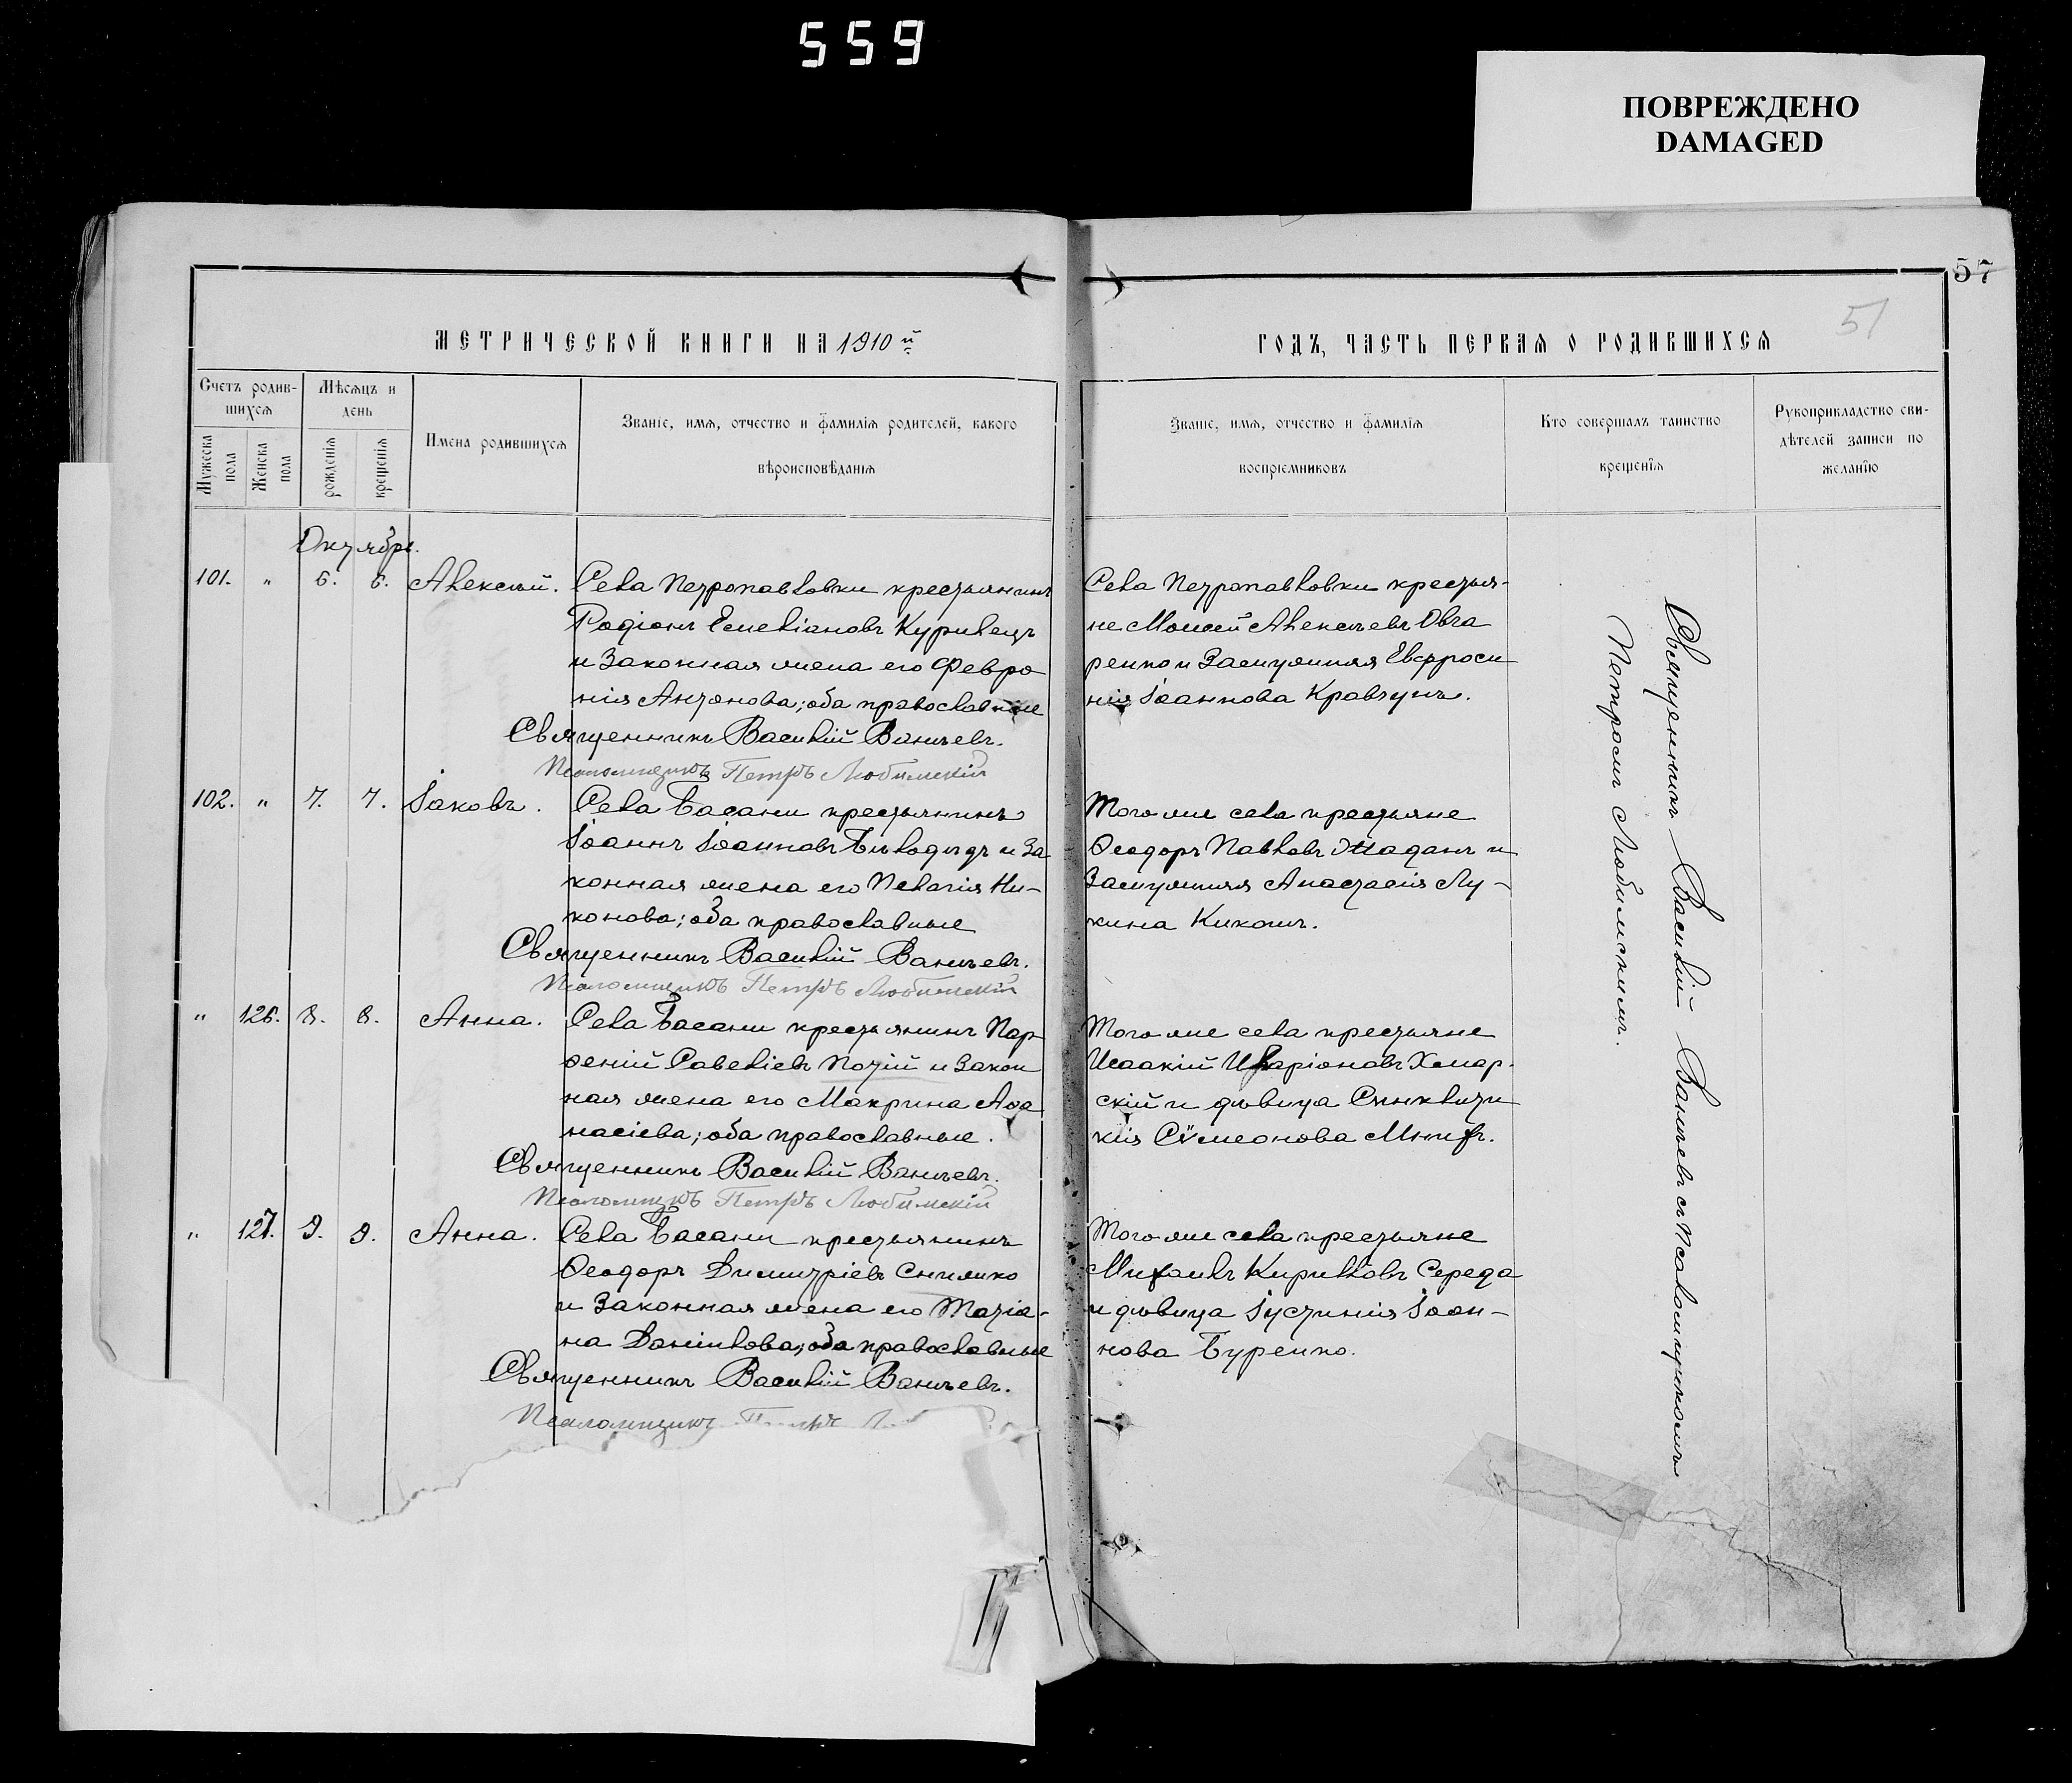 559
ПОВРЕЖДЕНО
DAMAGED
57
51
МЕТРИЧЕСКОЙ КНИГИ НА 1910 й
ГОДЪ, ЧАСТЬ ПЕРВАЯ О РОДИВШИХСЯ
Счетъ родив-
шихся
Мѣсяцъ и
день
Мужеска
пола
Женска
пола
рожденія
крещенія
Имена родившихся
Званіе, имя, отчество и фамилія родителей, какого
вѣроисповѣданія
Званіе, имя, отчество и фамилія
воспріемниковъ
Кто совершалъ таинство
крещенія
Рукоприкладство сви-
дѣтелей записи по
желанію
Октябрь.
101. " 6. 6. Алексѣй. Села Петропавловки крестьянинъ
Родіонъ Емеліановъ Курилецъ
и законная жена его Февро
нія Антонова; оба православные
Священникъ Василій Ваничевъ.
Псаломщикъ Петръ Любимскій
Села Петропавловки крестья-
не Моисей Алексѣевъ Овча
ренко и замужняя Евфроси
нія Іоаннова Кравчунъ.
102. " 7. 7. Іаковъ. Села Басани крестьянинъ
Іоаннъ Іоанновъ Билодидъ и за
конная жена его Пелагія Ни-
конова; оба православные
Священникъ Василій Ваничевъ.
Псаломщикъ Петръ Любимскій
Того же села крестьяне
Ѳеодоръ Павловъ Жаданъ и
замужняя Анастасія Лу-
кина Кикотъ.
" 126. 8. 8. Анна. Села Басани крестьянинъ Пар
ѳеній Савеліевъ Потій и закон
ная жена его Макрина Аѳа
насіева; оба православные.
Священникъ Василій Ваничевъ.
Псаломщикъ Петръ Любимскій
Того же села крестьяне
Исаакій Иларіоновъ Хмар-
скій и дѣвица Синклити
кія Сѵмеонова
" 127. 9. 9. Анна. Села Басани крестьянинъ
Ѳеодоръ Димитріевъ Снижко
и законная жена его Татіа-
на Даніилова; оба православные
Священникъ Василій Ваничевъ.
Псаломщикъ Петръ
Того же села крестьяне
Михаилъ Кирилловъ Середа
и дѣвица Іустинія Іоан-
нова Буренко.
Священникъ Василій Ваничевъ съ Псаломщикомъ
Петромъ Любимскимъ.